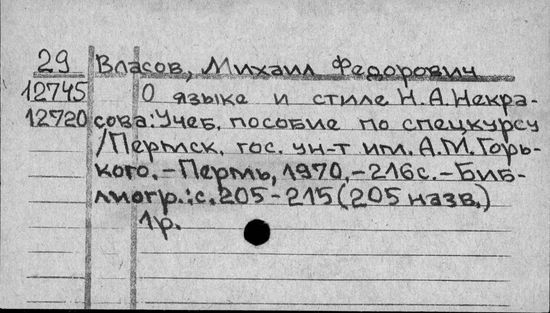 29 Власов, Михаил Федорович
12745 О языке и стиле Н.А.Некра-
12720 сова: Учеб. пособие по спецкурсу
/Пермск. гос. ун-т им. А.М.Горь-
кого. – Пермь, 1970. – 216с. – Биб-
лиогр.: с. 205-215 (205 назв.)
1р.